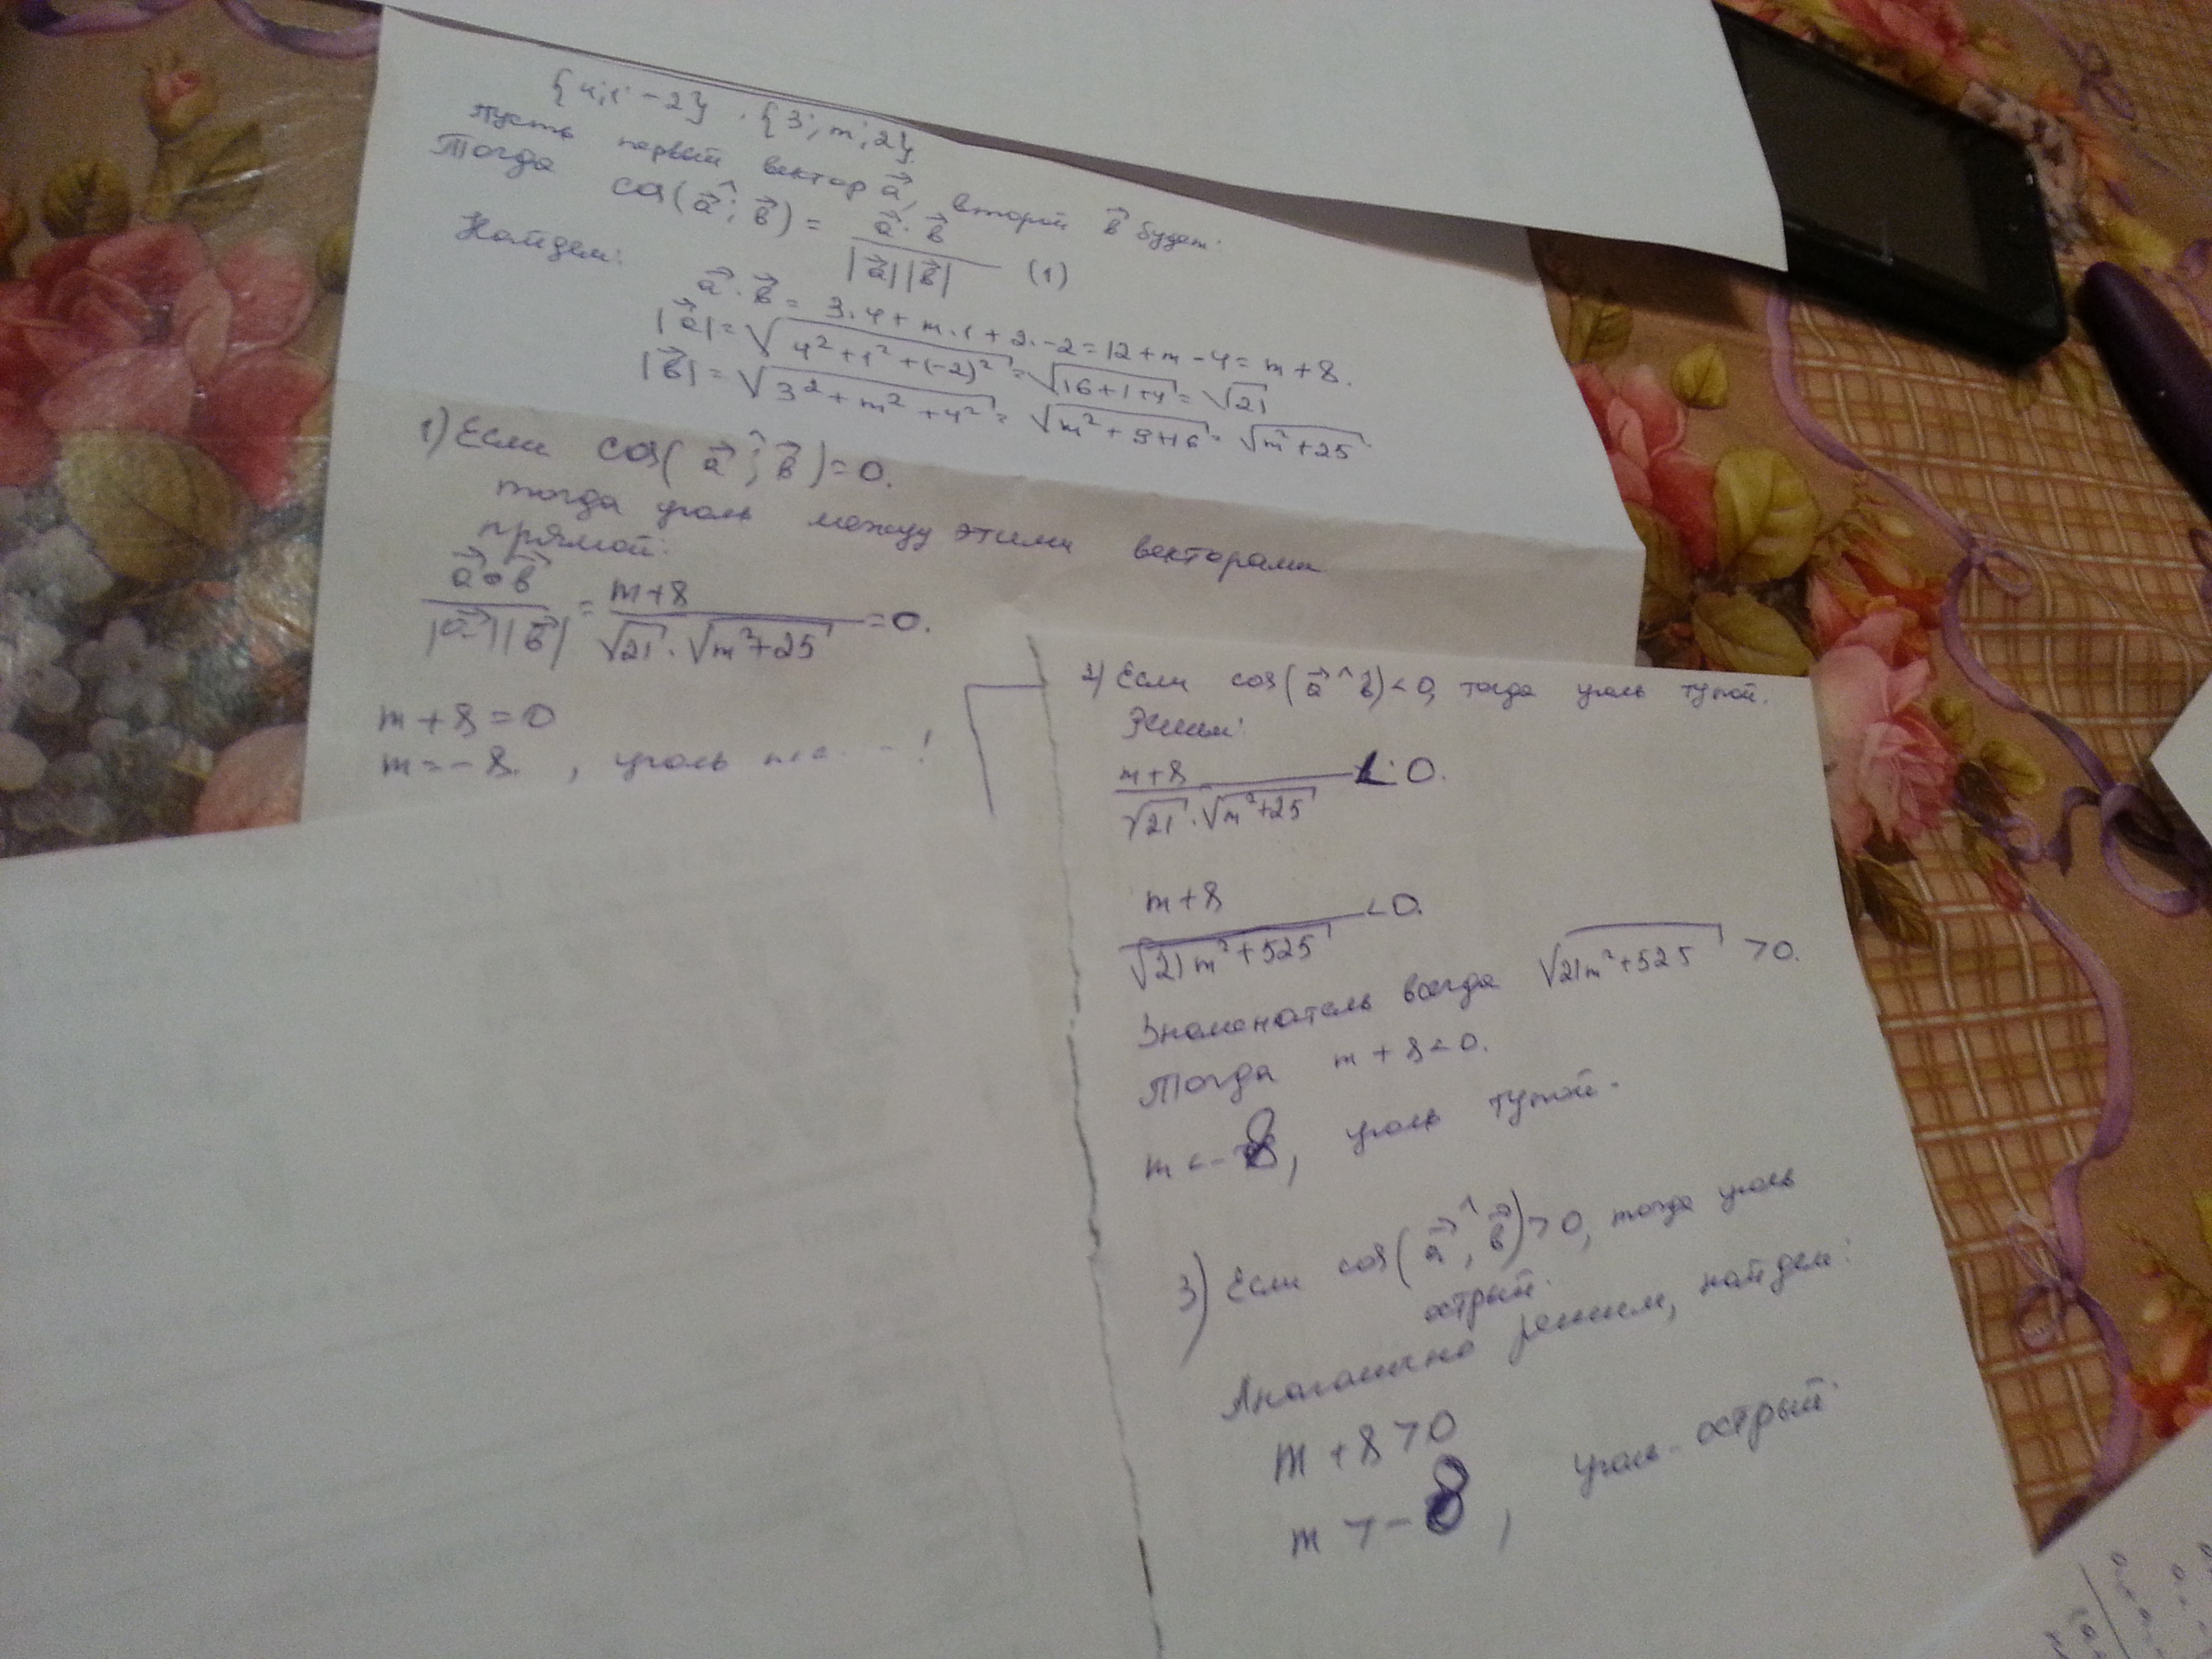 {4;1;-2} . {3;m;2}
Пусть первый вектор a⃗, второй b⃗ будет.
Тогда cos(a⃗^;b⃗) = (a⃗·b⃗)/(|a⃗||b⃗|) (1)
Найдем:
a⃗·b⃗ = 3·4+m·1+2·-2=12+m-4=m+8.
|a⃗|=√(4²+1²+(-2)²)=√(16+1+4)=√21
|b⃗|=√(3²+m²+4²)=√(m²+9+16)=√(m²+25)
1) Если cos(a⃗^;b⃗)=0.
тогда угол между этими векторами
прямой:
(a⃗∘b⃗)/(|a⃗||b⃗|) = (m+8)/(√21·√(m²+25)) =0.
m+8=0
m=-8. , угол !
2) Если cos(a⃗^b⃗)<0, тогда угол тупой.
Решим:
(m+8)/(√21·√(m²+25)) <0.
(m+8)/√(21m²+525) <0.
Знаменатель всегда √(21m²+525) >0.
Тогда m+8<0.
m<-8, угол тупой.
3) Если cos(a⃗^,b⃗)>0, тогда угол
острый.
Аналогично решим, найдем:
m+8>0
m>-8, угол острый.